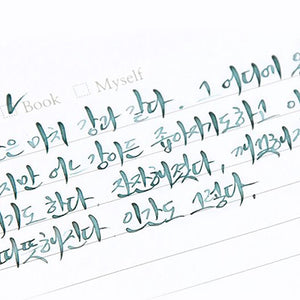 Book Myself
은 마치 강과 같다. 어디에
지만 어느 강이든 좁아지기도하고
기도 한다. 잔잔해졌다, 깨끗해
따뜻해진다 인간도 그렇다.